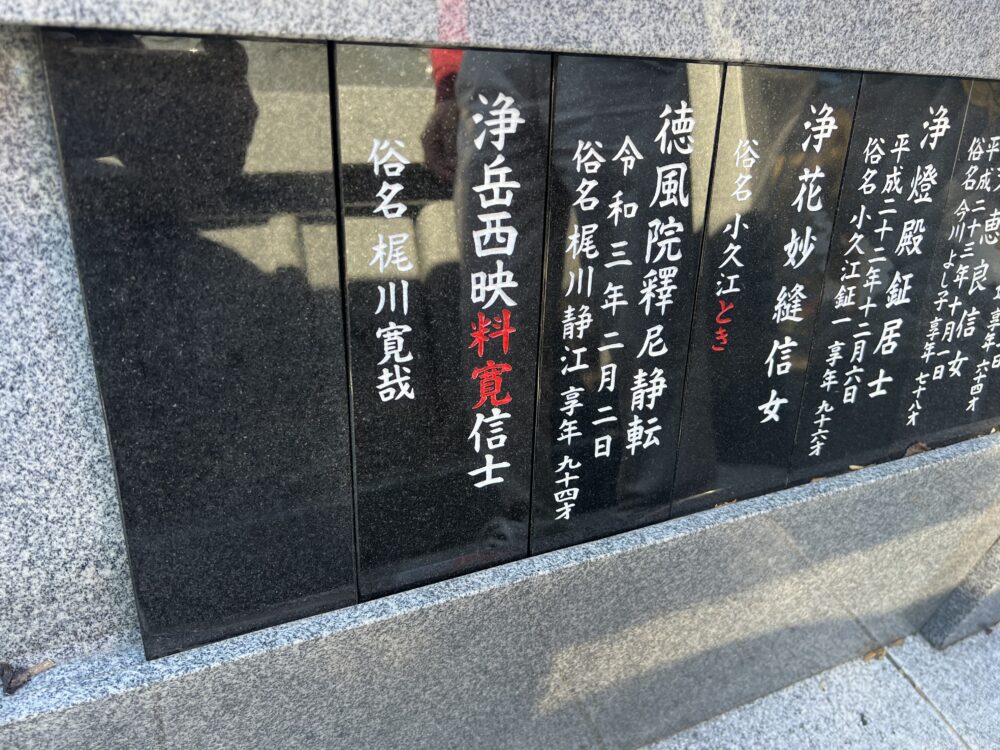 恵良信女
平成二十三年十月一日
俗名 今川よし子 享年 七十八才
浄燈殿鉦居士
平成二十二年十二月六日
俗名 小久江鉦一 享年 九十六才
浄花妙縫信女
俗名 小久江とき
徳風院釋尼静転
令和三年二月二日
俗名 梶川静江 享年 九十四才
浄岳西映料寛信士
俗名 梶川寛哉